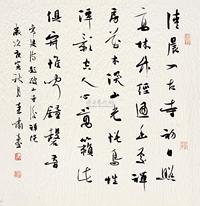 清晨入古寺初日照
高林竹徑通幽處禪
房花木深山光悅鳥性
潭影空人心萬籟此
俱寂惟聞鐘磬音
題破山寺後禪院
歲次庚寅秋月